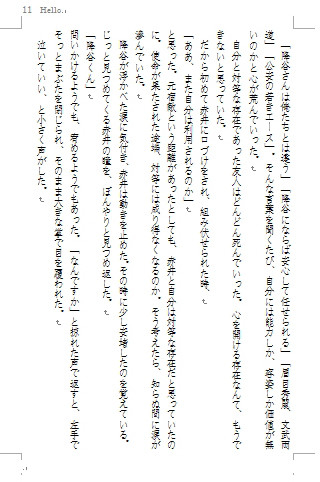 11 Hello.
「降谷さんは俺たちとは違う」「降谷にならば安心して任せられる」「眉目秀麗、文武両
道」「公安の若きエース」。そんな言葉を聞くたび、自分には能力しか、容姿しか価値が無
いのかと心が荒んでいった。
自分と対等な存在であった友人はどんどん死んでいった。心を開ける存在なんて、もうで
きないと思っていた。
だから初めて赤井に口づけをされ、組み伏せられた時、
「ああ、また自分は利用されるのか」
と思った。元宿敵という距離があったとしても、赤井と自分は対等な存在だと思っていたの
に。使命が果たされた途端、対等には成り得なくなるのか。そう考えたら、知らぬ間に涙が
滲んでいた。
降谷が浮かべた涙に気付き、赤井は動きを止めた。その時に少し安堵したのを覚えている。
じっと見つめてくる赤井の瞳を、ぼんやりと見つめ返した。
「降谷くん」
問いかけるようでも、宥めるようでもあった。「なんですか」と掠れた声で返すと、左手で
そっとまぶたを閉じられ、そのまま大きな掌で目を覆われた。
泣いていい、と小さく声がした。